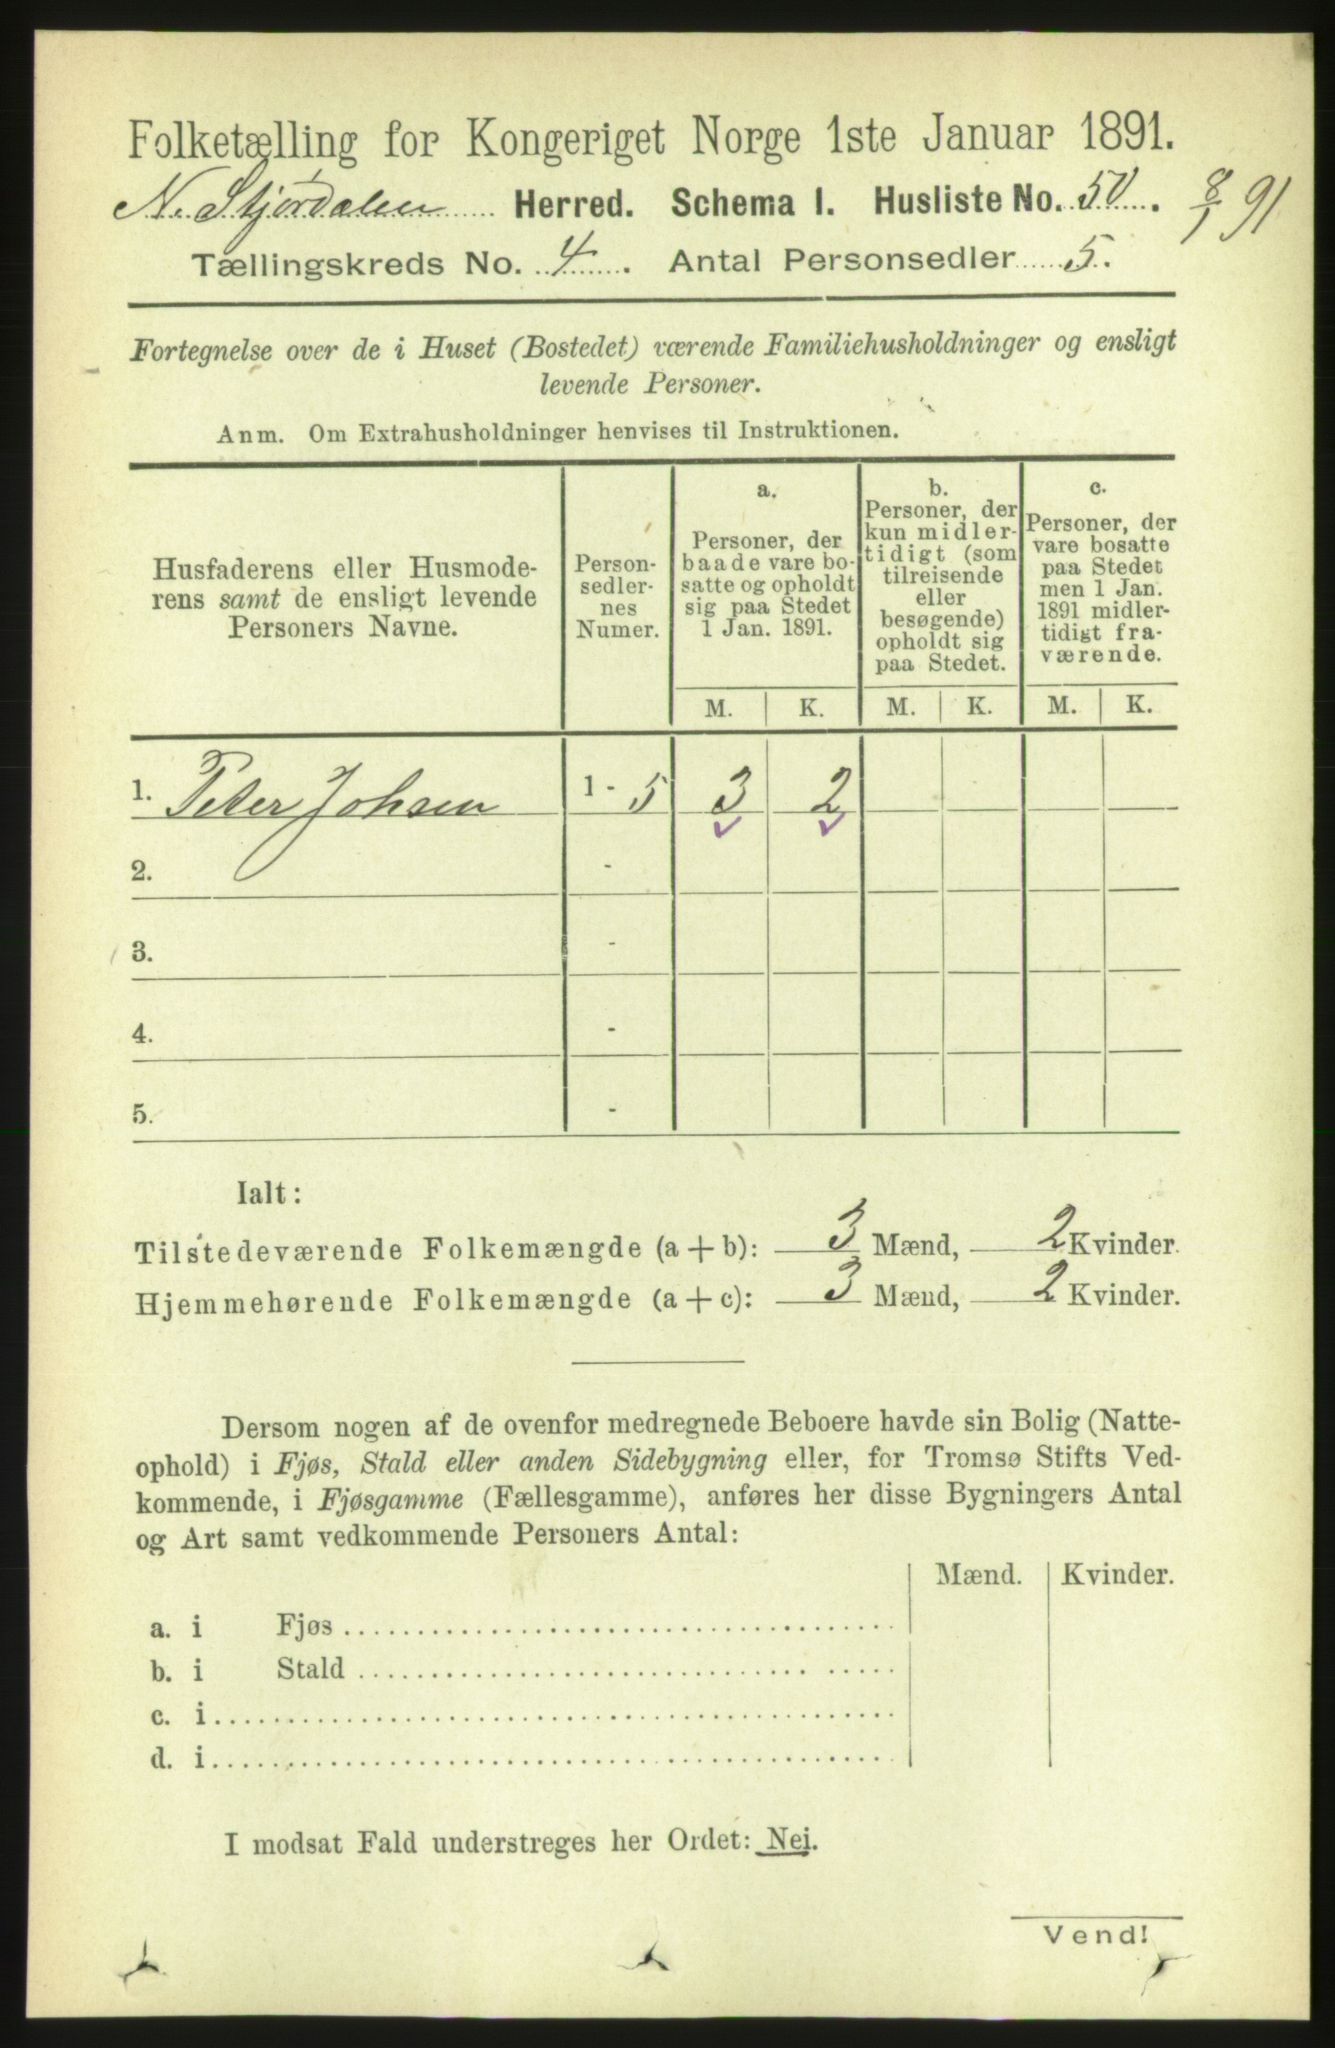 Folketælling for Kongeriget Norge 1ste Januar 1891.
N. Stjørdalen Herred. Schema I. Husliste No. 50. 8/1 91
Tællingskreds No. 4. Antal Personsedler 5.
Fortegnelse over de i Huset (Bostedet) værende Familiehusholdninger og ensligt
levende Personer.
Anm. Om Extrahusholdninger henvises til Instruktionen.
Husfaderens eller Husmode-
rens samt de ensligt levende
Personers Navne.
Person-
sedler-
nes
Numer.
a.
Personer, der
baade vare bo-
satte og opholdt
sig paa Stedet
1 Jan. 1891.
b.
Personer, der
kun midler-
tidigt (som
tilreisende
eller
besøgende)
opholdt sig
paa Stedet.
c.
Personer, der
vare bosatte
paa Stedet
men 1 Jan.
1891 midler-
tidigt fra-
værende.
M. K. M. K. M. K.
1. Peter Johsen 1 - 5 3 2
2. -
3. -
4. -
5. -
Ialt:
Tilstedeværende Folkemængde (a + b): 3 Mænd, 2 Kvinder.
Hjemmehørende Folkemængde (a + c): 3 Mænd, 2 Kvinder.
Dersom nogen af de ovenfor medregnede Beboere havde sin Bolig (Natte-
ophold) i Fjøs, Stald eller anden Sidebygning eller, for Tromsø Stifts Ved-
kommende, i Fjøsgamme (Fællesgamme), anføres her disse Bygningers Antal
og Art samt vedkommende Personers Antal:
Mænd. Kvinder.
a. i Fjøs
b. i Stald
c. i
d. i
I modsat Fald understreges her Ordet: Nei.
Vend!